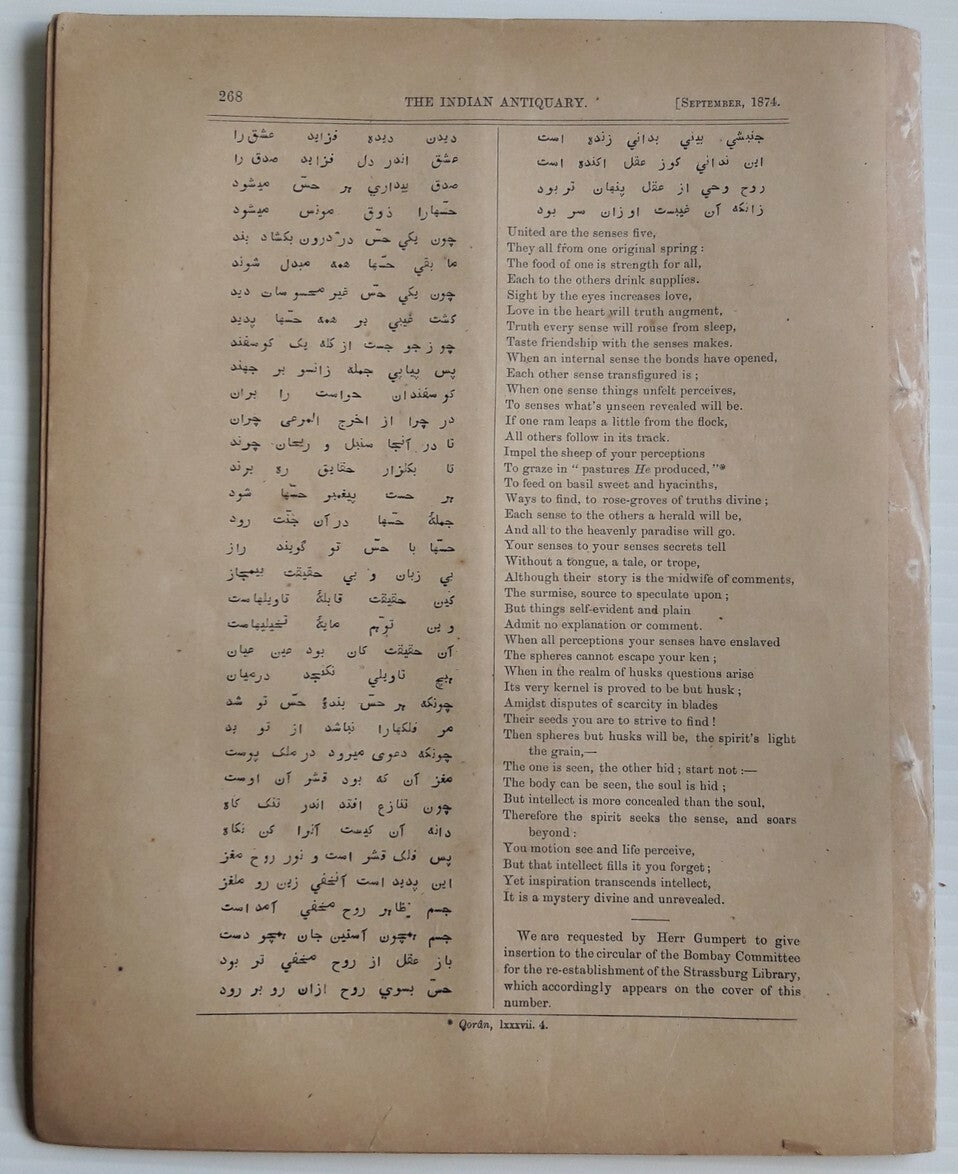 268
THE INDIAN ANTIQUARY.
[SEPTEMBER, 1874.
ديدن ديده فزايد عشق را
عشق اندر دل فزايد صدق را
صدق بيداري هر حسّ ميشود
حسّهارا ذوق مونس ميشود
چون يكي حسّ در درون بكشاد بند
ما بقي حسّها همه مبدل شوند
چون يكي حسّ غير محسوسات ديد
كشت غيبي بر همه حسّها پديد
چو ز جو جست از كله يک كوسفند
پس پياپي جمله زانسو بر جهند
كوسفندان حواست را بران
در چرا از اخرج المرعى چران
تا در آنجا سنبل و ريحان چرند
تا بكلزار حقايق ره برند
هر حست پيغمبر حسّها شود
جملهٔ حسّها در آن جنّت رود
حسّها با حسّ تو گويند راز
بي زبان و بي حقيقت بيمجاز
كين حقيقت قابلهٔ تاويلهاست
وين توهّم مايهٔ تخيليهاست
آن حقيقت كان بود عين عيان
هيچ تاويلي نكنجد درميان
چونكه هر حسّ بندهٔ حسّ تو شد
مر فلكهارا نباشد از تو بد
چونكه دعوى ميرود در ملک پوست
مغز آن كه بود قشر آن اوست
چون تنازع افتد اندر تنک كاه
دانه آن كيست آنرا كن نكاه
پس فلک قشر است و نور روح مغز
اين پديد است آنخفي زين رو ملغز
جسم ظاهر روح مخفي آمد است
جسم همچون آستين جان همچو دست
باز عقل از روح مخفي تر بود
حسّ بسوي روح ازان رو بر رود
جنبشي بيني بداني زنده است
اين نداني كوز عقل اكنده است
روح وحي از عقل پنهان تر بود
زانكه آن غيبست اوزان سر بود
United are the senses five,
They all from one original spring :
The food of one is strength for all,
Each to the others drink supplies.
Sight by the eyes increases love,
Love in the heart will truth augment,
Truth every sense will rouse from sleep,
Taste friendship with the senses makes.
When an internal sense the bonds have opened,
Each other sense transfigured is ;
When one sense things unfelt perceives,
To senses what's unseen revealed will be.
If one ram leaps a little from the flock,
All others follow in its track.
Impel the sheep of your perceptions
To graze in " pastures He produced, "*
To feed on basil sweet and hyacinths,
Ways to find, to rose-groves of truths divine ;
Each sense to the others a herald will be,
And all to the heavenly paradise will go.
Your senses to your senses secrets tell
Without a tongue, a tale, or trope,
Although their story is the midwife of comments,
The surmise, source to speculate upon ;
But things self-evident and plain
Admit no explanation or comment.
When all perceptions your senses have enslaved
The spheres cannot escape your ken ;
When in the realm of husks questions arise
Its very kernel is proved to be but husk ;
Amidst disputes of scarcity in blades
Their seeds you are to strive to find !
Then spheres but husks will be, the spirit's light
the grain,—
The one is seen, the other hid ; start not :—
The body can be seen, the soul is hid ;
But intellect is more concealed than the soul,
Therefore the spirit seeks the sense, and soars
beyond :
You motion see and life perceive,
But that intellect fills it you forget ;
Yet inspiration transcends intellect,
It is a mystery divine and unrevealed.
We are requested by Herr Gumpert to give
insertion to the circular of the Bombay Committee
for the re-establishment of the Strassburg Library,
which accordingly appears on the cover of this
number.
* Qorân, lxxxvii. 4.